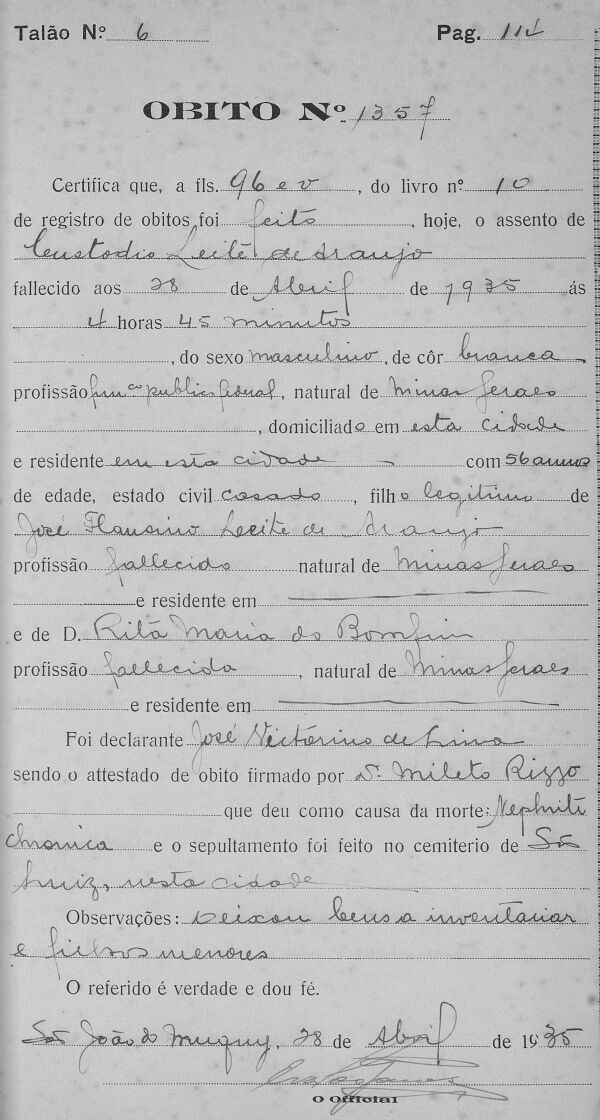 Talão Nº 6 Pag. 114
OBITO Nº 1357
Certifica que, a fls. 96 e v, do livro nº 10
de registro de obitos foi feito, hoje, o assento de
Custodio Leite de Araujo
fallecido aos 28 de Abril de 1935 ás
4 horas 45 minutos
, do sexo masculino, de côr branca
profissão func.co publico federal, natural de Minas Geraes
, domiciliado em esta cidade
e residente em esta cidade com 56 annos
de edade, estado civil casado, filho legitimo de
José Flausino Leite de Araujo
profissão fallecido natural de Minas Geraes
e residente em
e de D. Rita Maria do Bomfim
profissão fallecida, natural de Minas Geraes
e residente em
Foi declarante José Victorino de Lima
sendo o attestado de obito firmado por Dr. Mileto Rizzo
que deu como causa da morte: Nephrite
chronica e o sepultamento foi feito no cemiterio de São
Luiz, nesta cidade
Observações: Deixou bens a inventariar
e filhos menores
O referido é verdade e dou fé.
São João do Muquy, 28 de Abril de 1935
O Official